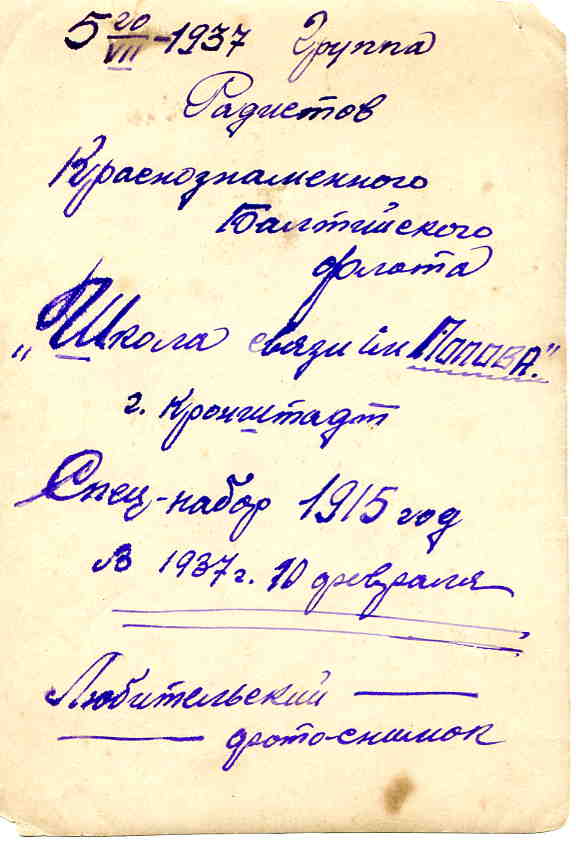 5 го/VII - 1937 Группа
Радистов
Краснознаменного
Балтийского
флота
„Школа связи им Попова."
г. Кронштадт
Спец-набор 1915 год
в 1937 г. 10 февраля
Любительский —
— фото-снимок